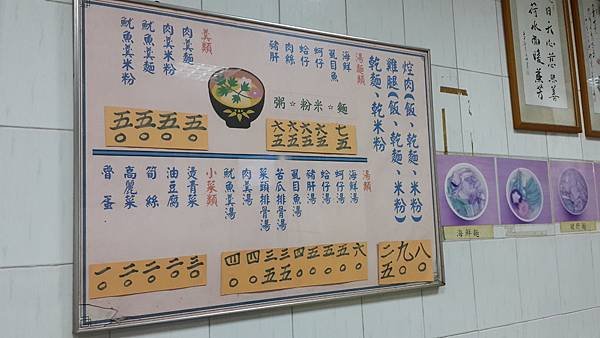 焢肉(飯、乾麵、米粉)
雞腿(飯、乾麵、米粉)
乾麵、乾米粉
八〇
九〇
二五
湯麵類
海鮮
虱目魚
蚵仔
蛤仔
肉絲
豬肝
七五
六五
六五
六五
六五
羹類
肉羹麵
肉羹米粉
魷魚羹麵
魷魚羹米粉
五〇
五〇
五〇
五〇
粥☆粉米☆麵
湯類
海鮮湯
蚵仔湯
蛤仔湯
豬肝湯
虱目魚湯
苦瓜排骨湯
菜頭排骨湯
肉羹湯
魷魚羹湯
六〇
五〇
五〇
五〇
四〇
三五
三五
四〇
四〇
小菜類
燙青菜
油豆腐
筍絲
高麗菜
魯蛋
三〇
二〇
二〇
二〇
一〇
海鮮麵